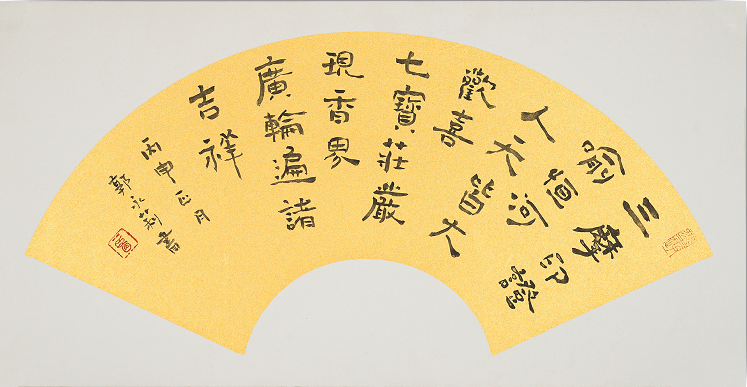 三摩印證
喻恒河
人天皆大
歡喜
七寶莊嚴
現香界
廣輪遍諸
吉祥
丙申正月
郭永莉書